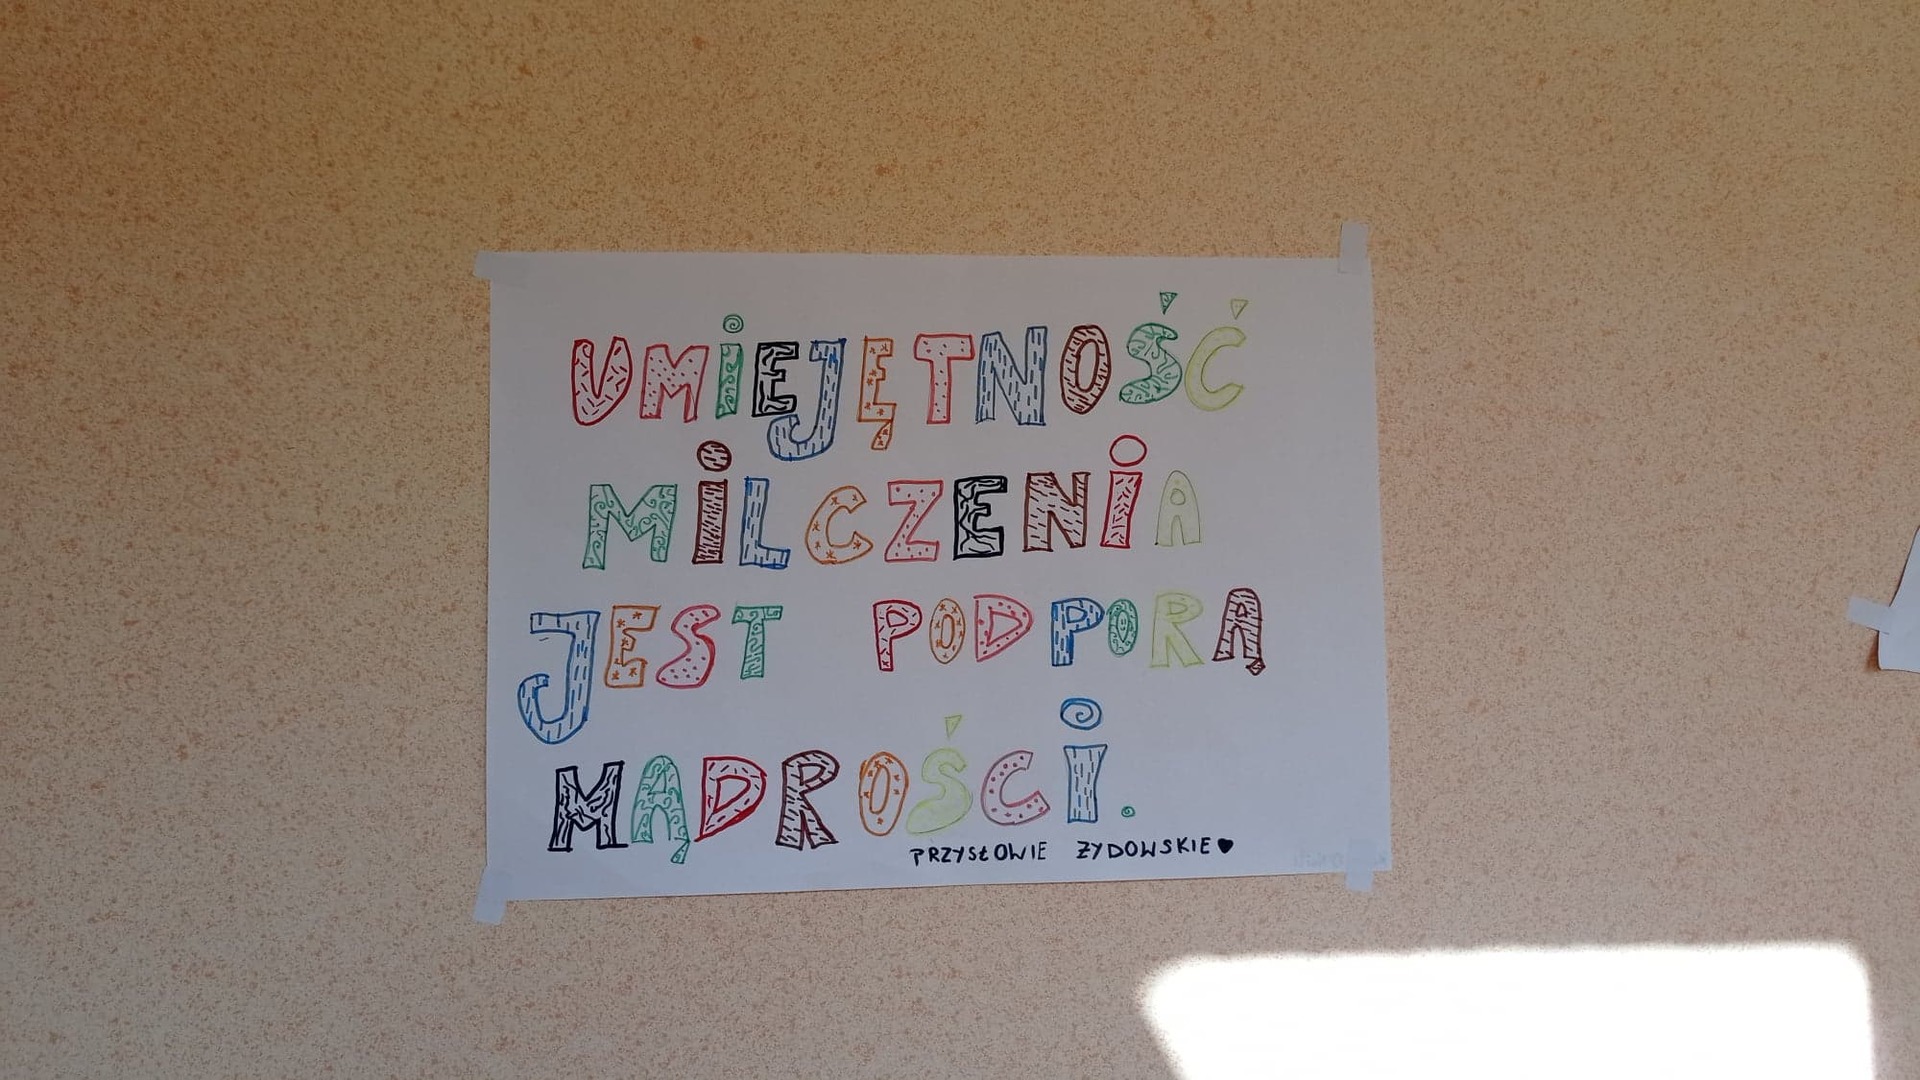 UMiEJĘTNOŚĆ
MiLCZENiA
JEST PODPORĄ
MĄDROŚCi.
PRZYSŁOWIE ŻYDOWSKIE♥